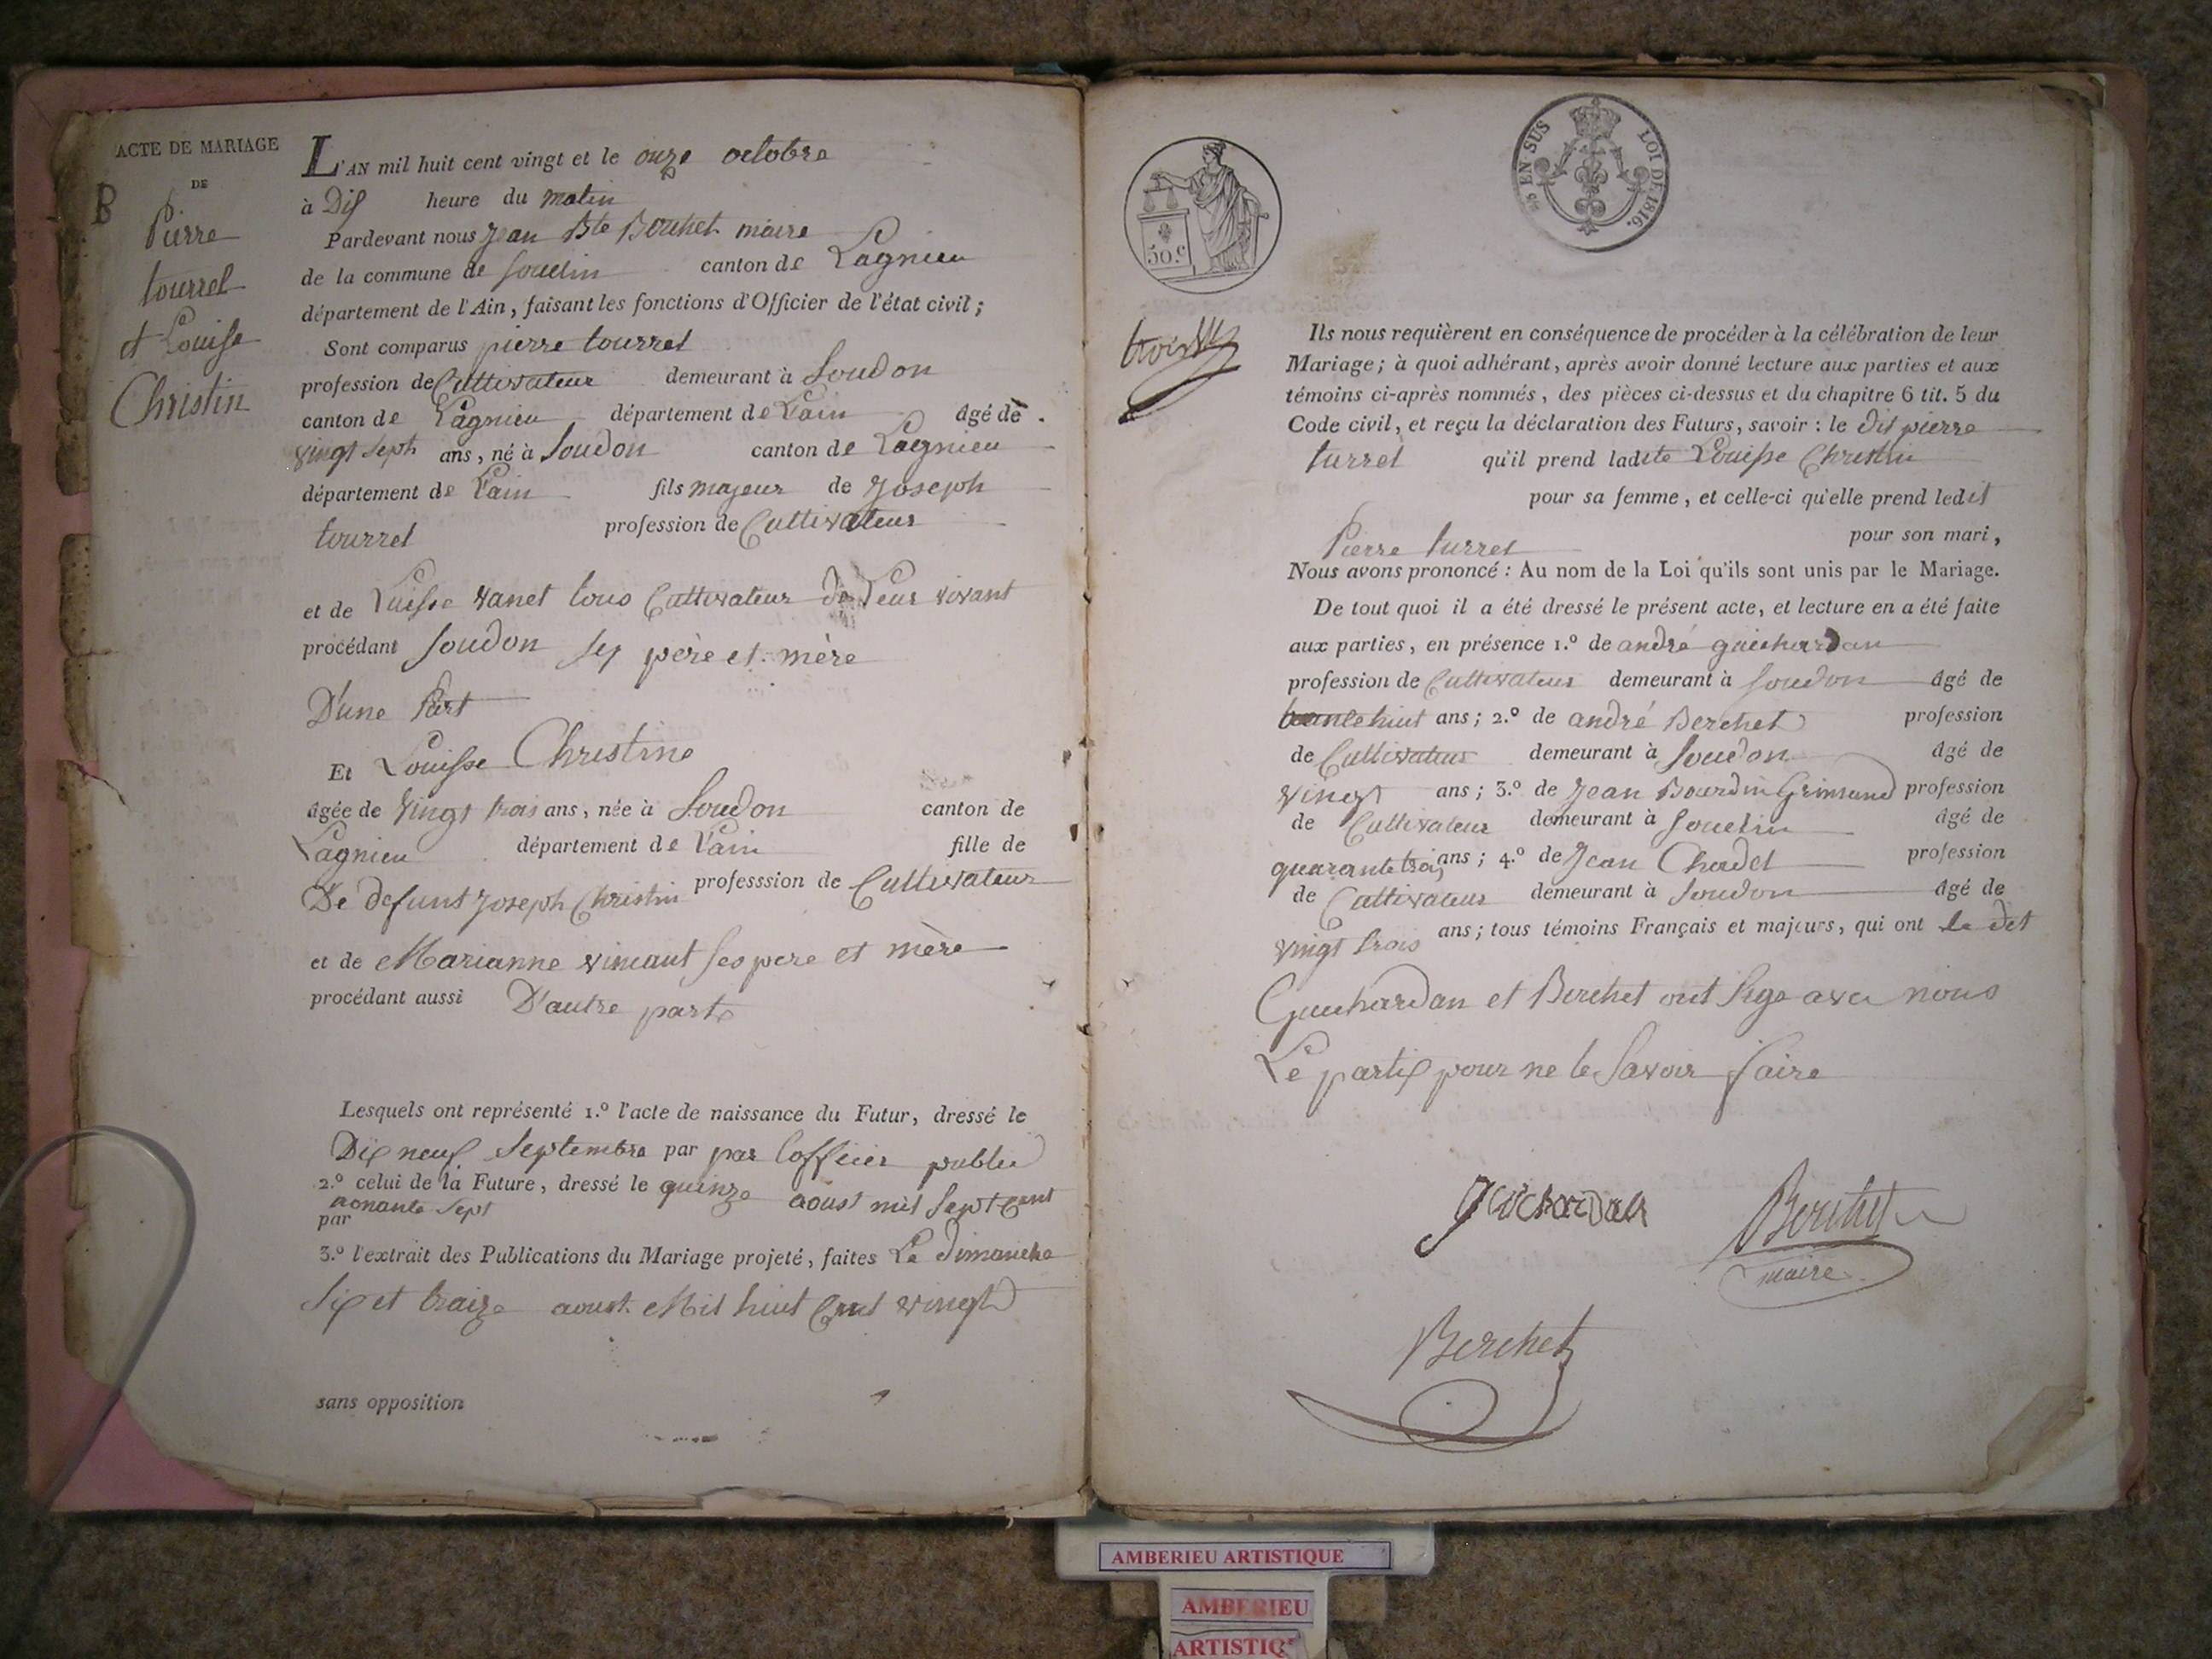 ACTE DE MARIAGE
DE
B
Pierre
tourrel
et Louise
Christin
L'AN mil huit cent vingt et le onze octobre
à Dix heure du matin
Pardevant nous Jean Bte Berchet maire
de la commune de Soudin canton de Lagnieu
département de l'Ain, faisant les fonctions d'Officier de l'état civil;
Sont comparus pierre tourrel
profession de Cultivateur demeurant à Soudon
canton de Lagnieu département de Lain âgé de
vingt sept ans, né à Soudon canton de Lagnieu
département de Lain fils majeur de Joseph
tourrel profession de Cultivateur
et de Luisse vanet tous Cultivateur de Leur vivant
procédant Soudon ses père et mère
D'une Part
Et Louisse Christine
âgée de vingt trois ans, née à Soudon canton de
Lagnieu département de Lain fille de
De defunt Joseph Christin professsion de Cultivateur
et de Marianne vincant ses pere et mère
procédant aussi D'autre part
Lesquels ont représenté 1.º l'acte de naissance du Futur, dressé le
Dix neuf Septembre par par Lofficier public
2.º celui de la Future, dressé le quinze aoust mil Sept Cent
nonante Sept
par
3.º l'extrait des Publications du Mariage projeté, faites Le dimanche
Six et traize aoust Mil huit Cent vingt
sans opposition
50.c
EN SUS LOI DE 1816.
Ils nous requièrent en conséquence de procéder à la célébration de leur
Mariage; à quoi adhérant, après avoir donné lecture aux parties et aux
témoins ci-après nommés, des pièces ci-dessus et du chapitre 6 tit. 5 du
Code civil, et reçu la déclaration des Futurs, savoir : le dit pierre
turrel qu'il prend ladite Louisse Christin
pour sa femme, et celle-ci qu'elle prend ledit
Pierre turrel pour son mari,
Nous avons prononcé : Au nom de la Loi qu'ils sont unis par le Mariage.
De tout quoi il a été dressé le présent acte, et lecture en a été faite
aux parties, en présence 1.º de andré guichardan
profession de Cultivateur demeurant à Soudon âgé de
trante huit ans; 2.º de andré Berchet profession
de Cultivateur demeurant à Soudon âgé de
vingt ans; 3.º de Jean Bourdin Grimand profession
de Cultivateur demeurant à Soudin âgé de
quarante trois ans; 4.º de Jean Chadel profession
de Cultivateur demeurant à Soudon âgé de
vingt trois ans; tous témoins Français et majeurs, qui ont le dit
Guichardan et Berchet ont Sige avec nous
Le partis pour ne le Savoir faire
guichardan
Berchet
maire
Berchet
AMBERIEU ARTISTIQUE
AMBERIEU
ARTISTIQ